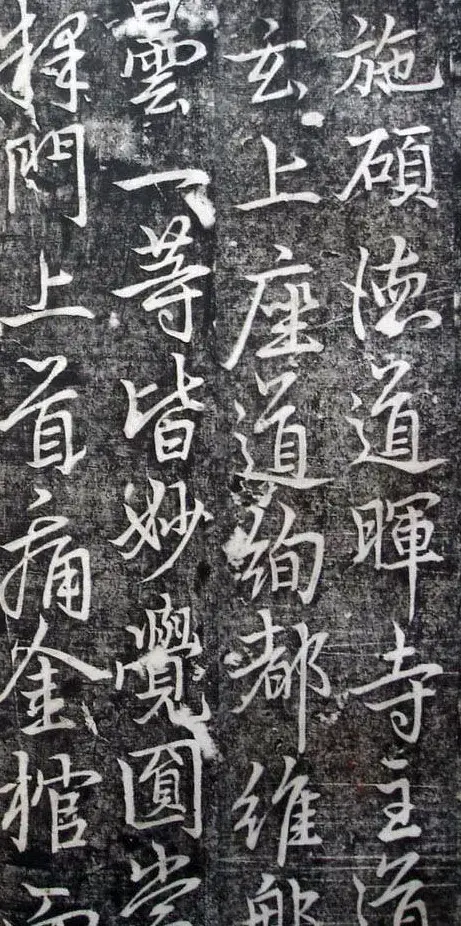 施碩德道暉寺主道
玄上座道絢都維那
曇一等皆妙覺圓常
釋門上首痛金棺而